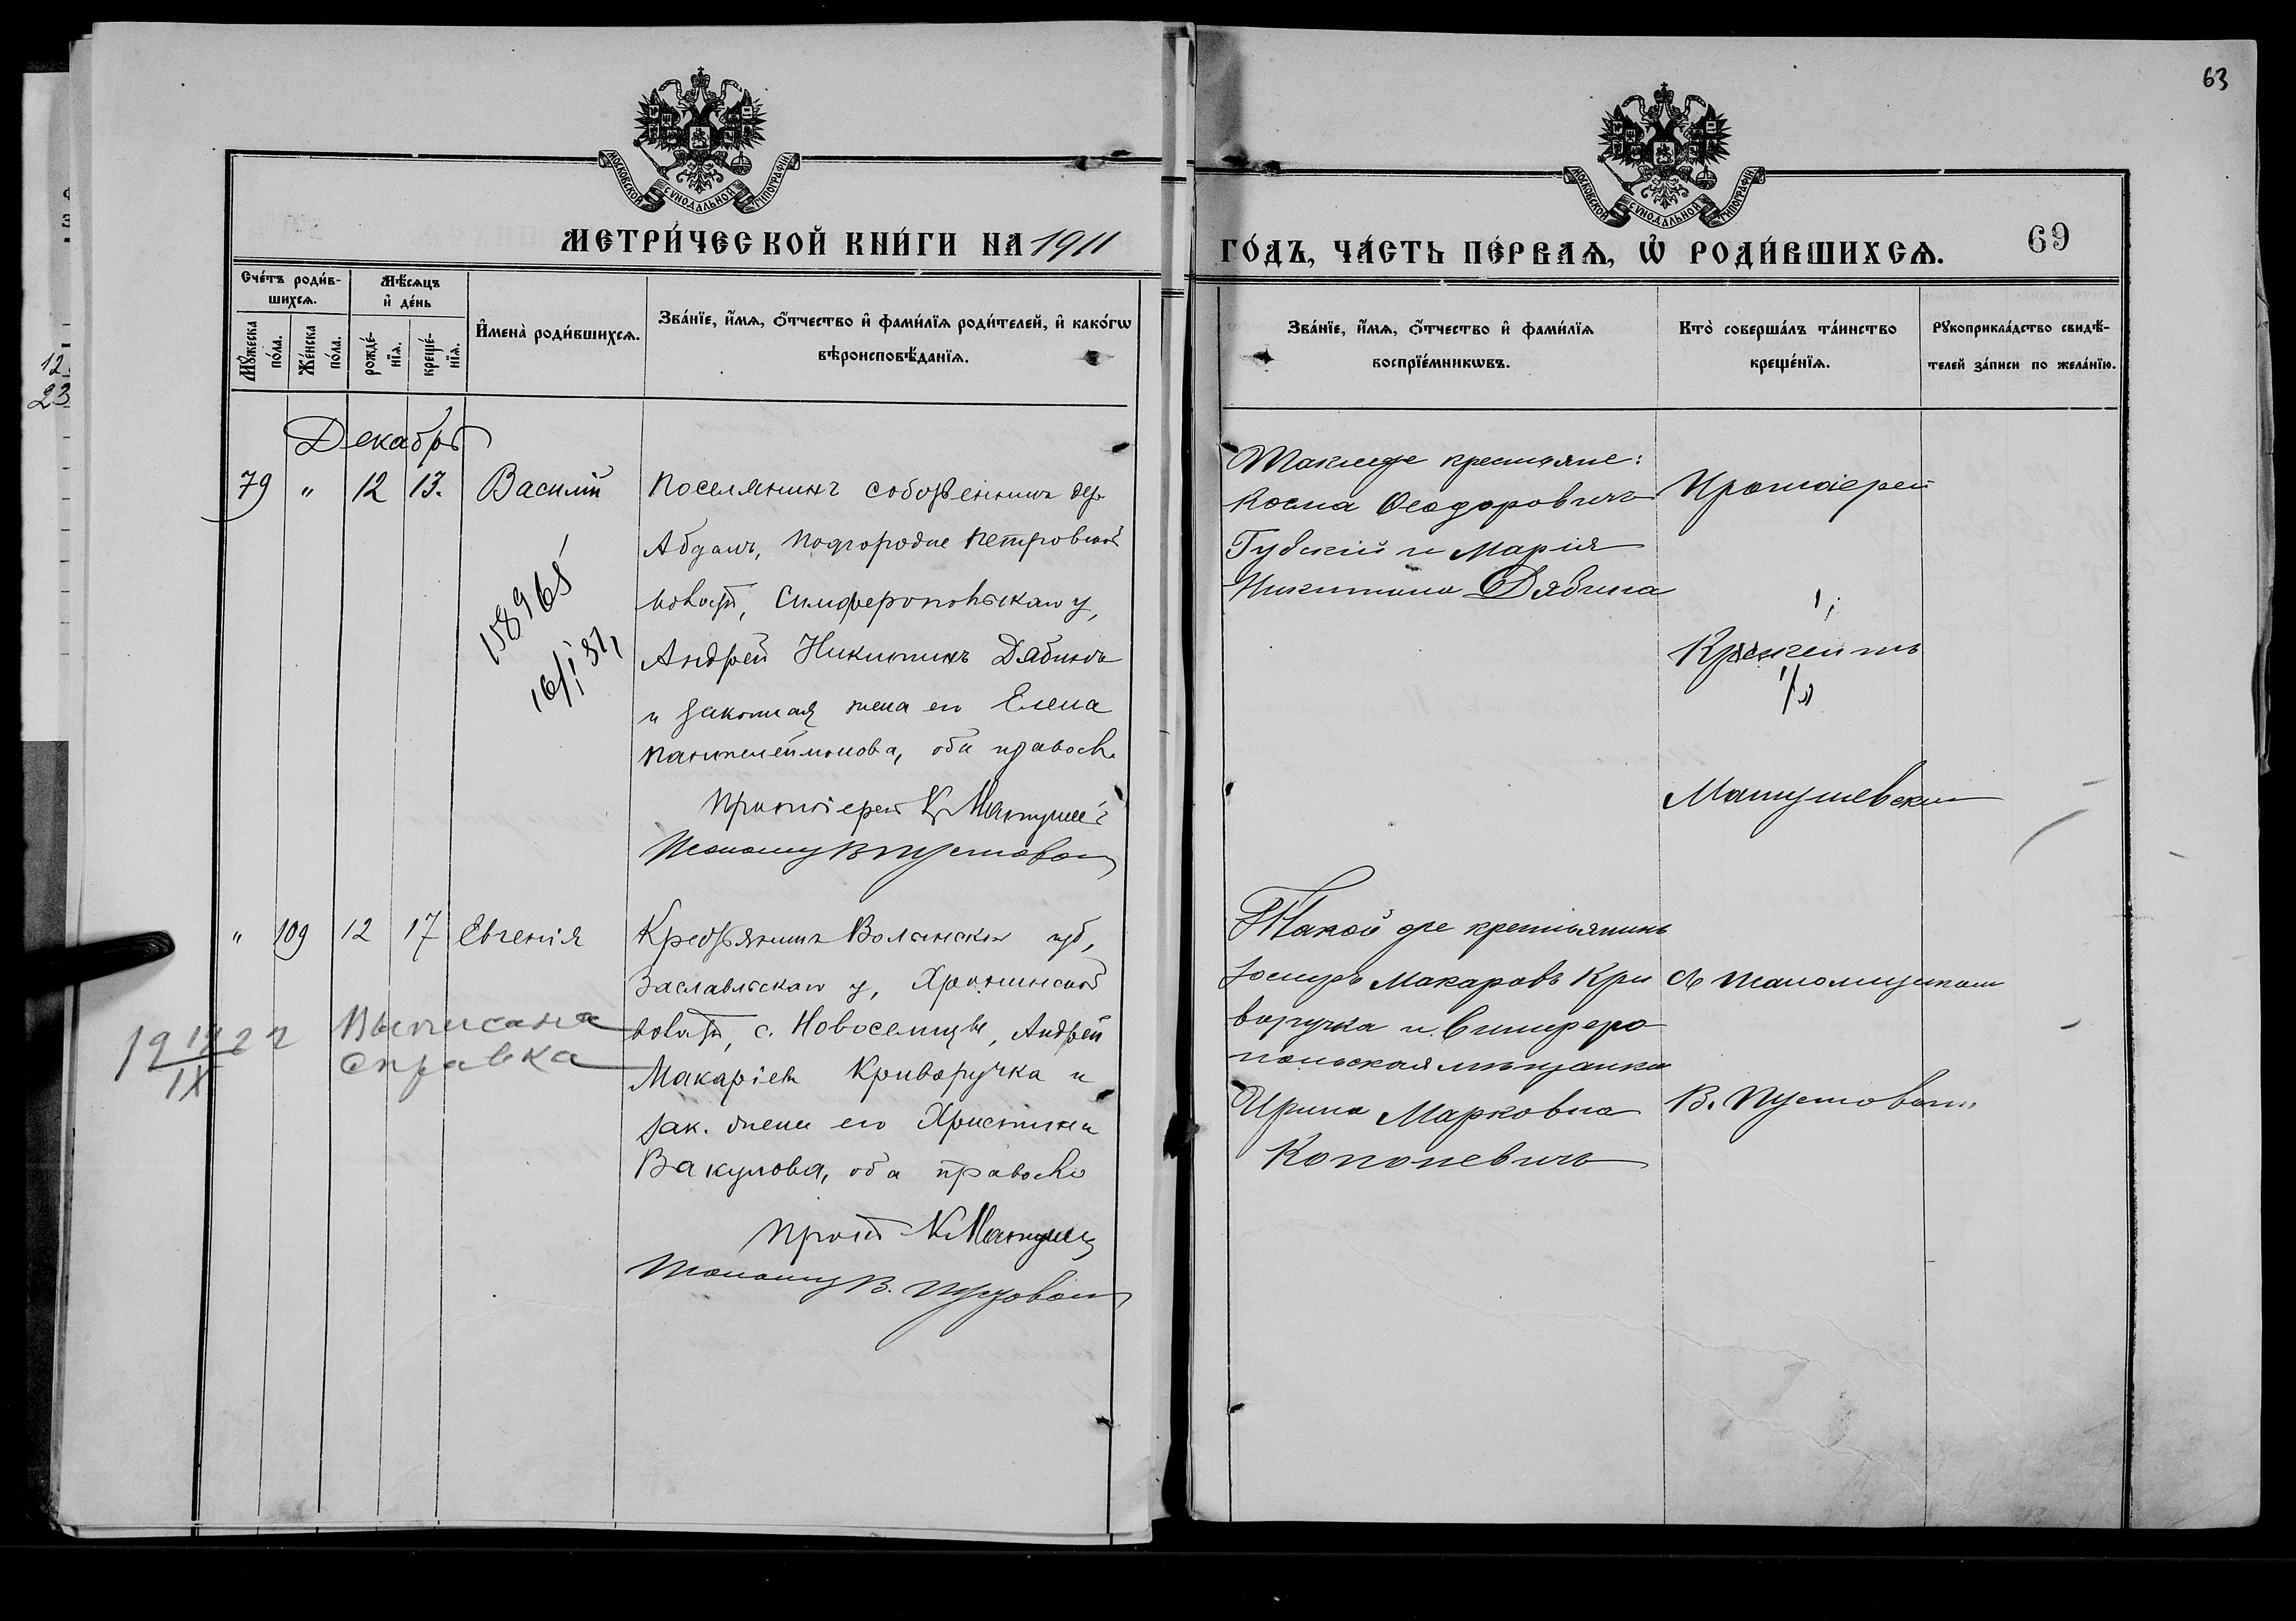 63
МОСКОВСКОЙ СѴНОДАЛЬНОЙ ТИПОГРАФІИ
МОСКОВСКОЙ СѴНОДАЛЬНОЙ ТИПОГРАФІИ
МЕТРИ́ЧЕСКОЙ КНИ́ГИ НА 1911
ГО́ДЪ, ЧА́СТЬ ПЕ́РВАѦ, Ѡ҆ РОДИ́ВШИХСѦ.
69
Сче́тъ роди́в-
шихсѧ.
Мꙋ́жеска
по́ла.
Же́нска
по́ла.
Мѣ́сѧцъ
и҆ де́нь
рожде́-
нїѧ.
креще́-
нїѧ.
И҆мена̀ роди́вшихсѧ.
Зва́нїе, и҆́мѧ, ѻ҆́тчество и҆ фами́лїѧ роди́телей, и҆ како́гѡ
вѣроисповѣ́данїѧ.
Зва́нїе, и҆́мѧ, ѻ҆́тчество и҆ фами́лїѧ
воспрїе́мникѡвъ.
Кто̀ соверша́лъ та́инство
креще́нїѧ.
Рꙋкоприкла́дство свидѣ́-
телей за́писи по жела́нїю.
12
23
Декабрь
79 " 12 13. Василій
Поселянинъ собственникъ дер.
Абдалъ, Подгородне Петровской
волости, Симферопольскаго у,
Андрей Никитинъ Дябинъ
и законная жена его Елена
Пантелеймонова, оба правосл.
Протоіерей К. Матушев
Псаломщ В Пустовой
158965
16/I 31,
Также крестьяне:
Косма Ѳеодоровичъ
Губскій и Марія
Никитина Дябина
Протоіерей
Матушевскій
" 109 12 17 Евгенія
Крестьянинъ Волынской губ,
Заславльскаго у,
волости, с. Новоселицы, Андрей
Макаріевъ Криворучка и
зак. жена его Христина
Вакулова, оба правосл
Прот К. Матушев
Псаломщ В. Пустовой
19 12/IX 22
Выписана
справка
Такой же крестьянинъ
Іосифъ Макаровъ Кри
воручка и Симферо
польская мѣщанка
Ирина Марковна
Кононевичъ
Съ псаломщикомъ
В. Пустовой